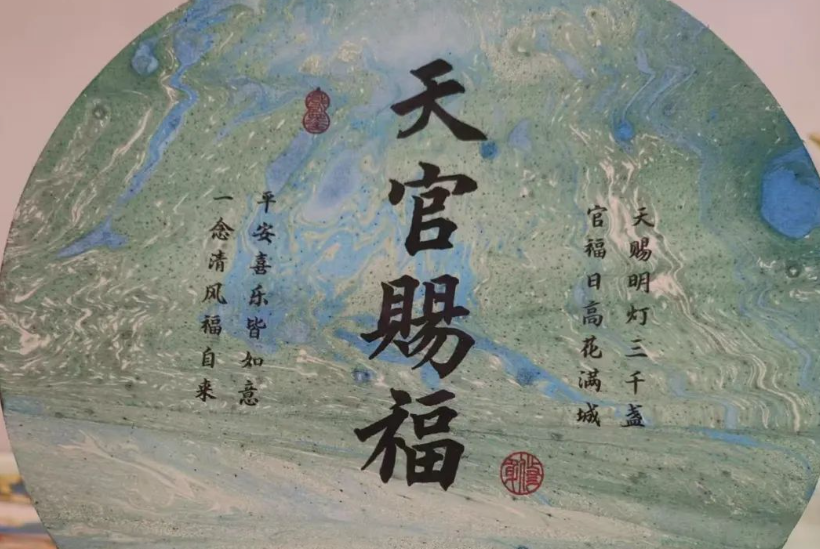 天赐明灯三千盏
官福日高花满城
天官賜福
平安喜乐皆如意
一念清风福自来